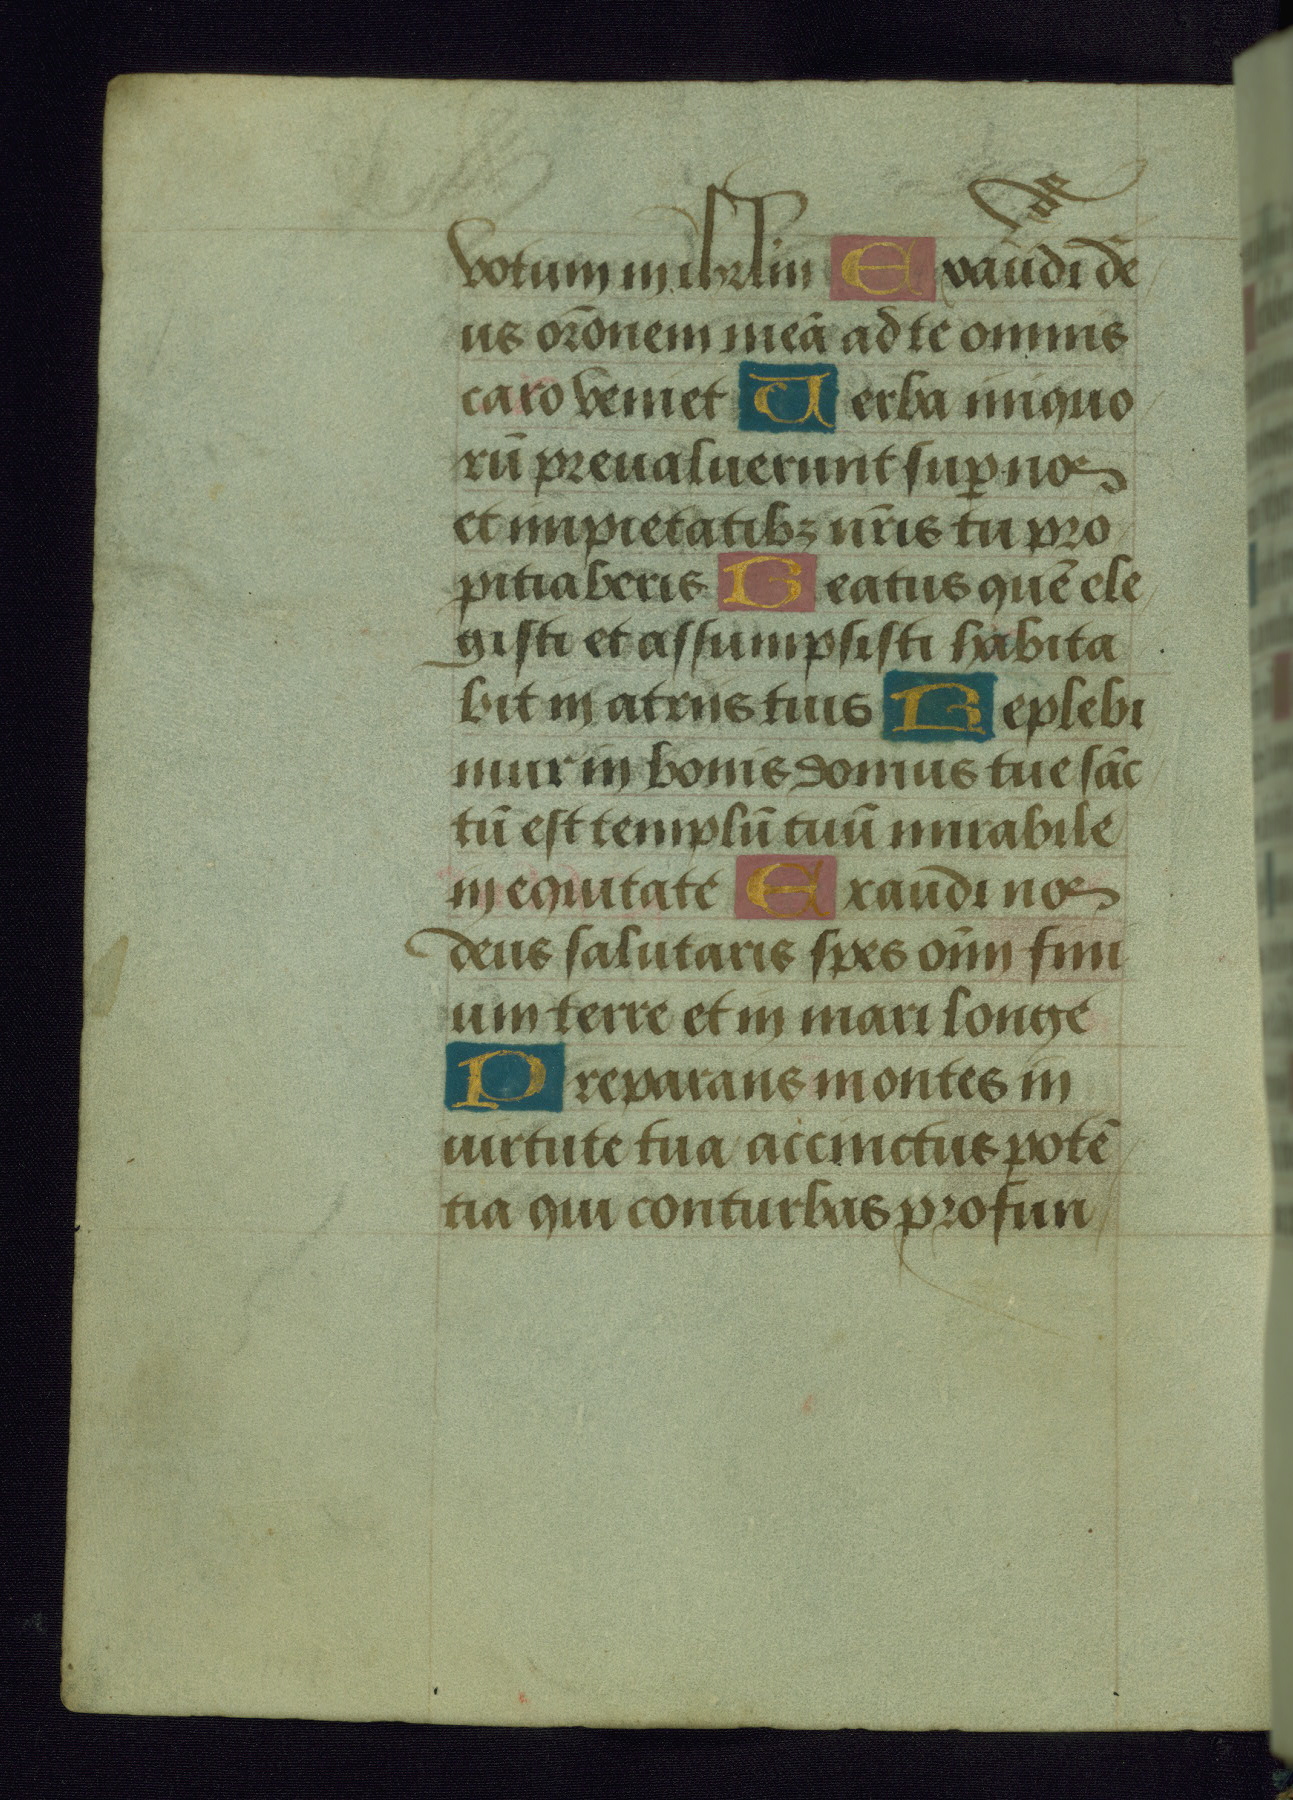 votum in ihrlm Exaudi de
us orōnem meā ad te omnis
caro veniet Uerba iniquo
rū preualuerunt suꝑ nos
et impietatibꝫ nr̄is tu pro
pitiaberis Beatus quē ele
gisti et assumpsisti habita
bit in atriis tuis Replebi
mur in bonis domus tue sāc
tū est templū tuū mirabile
in equitate Exaudi nos
deus salutaris spes om̄i fini
um terre et in mari longe
Preparans montes in
uirtute tua accinctus potē
tia qui conturbas profun